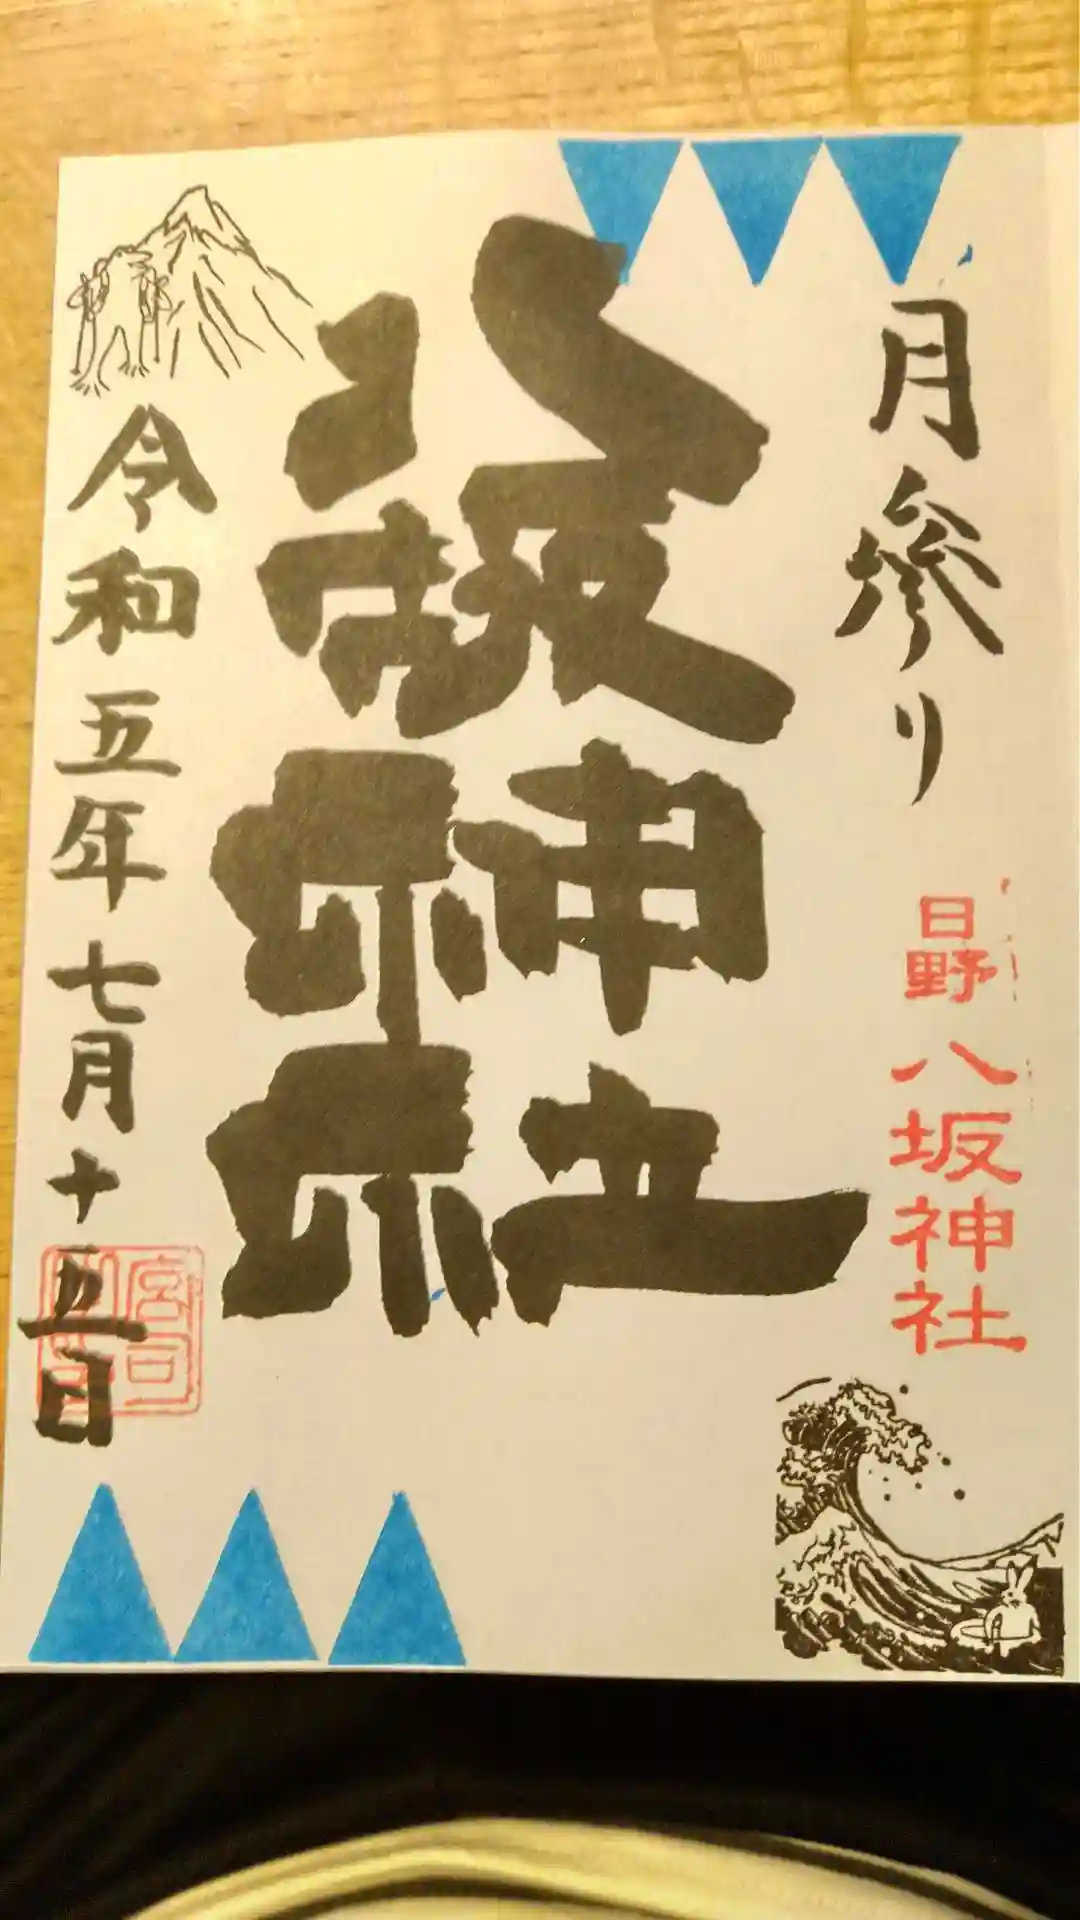 月参り
日野八坂神社
八坂神社
令和五年七月十五日
宮司